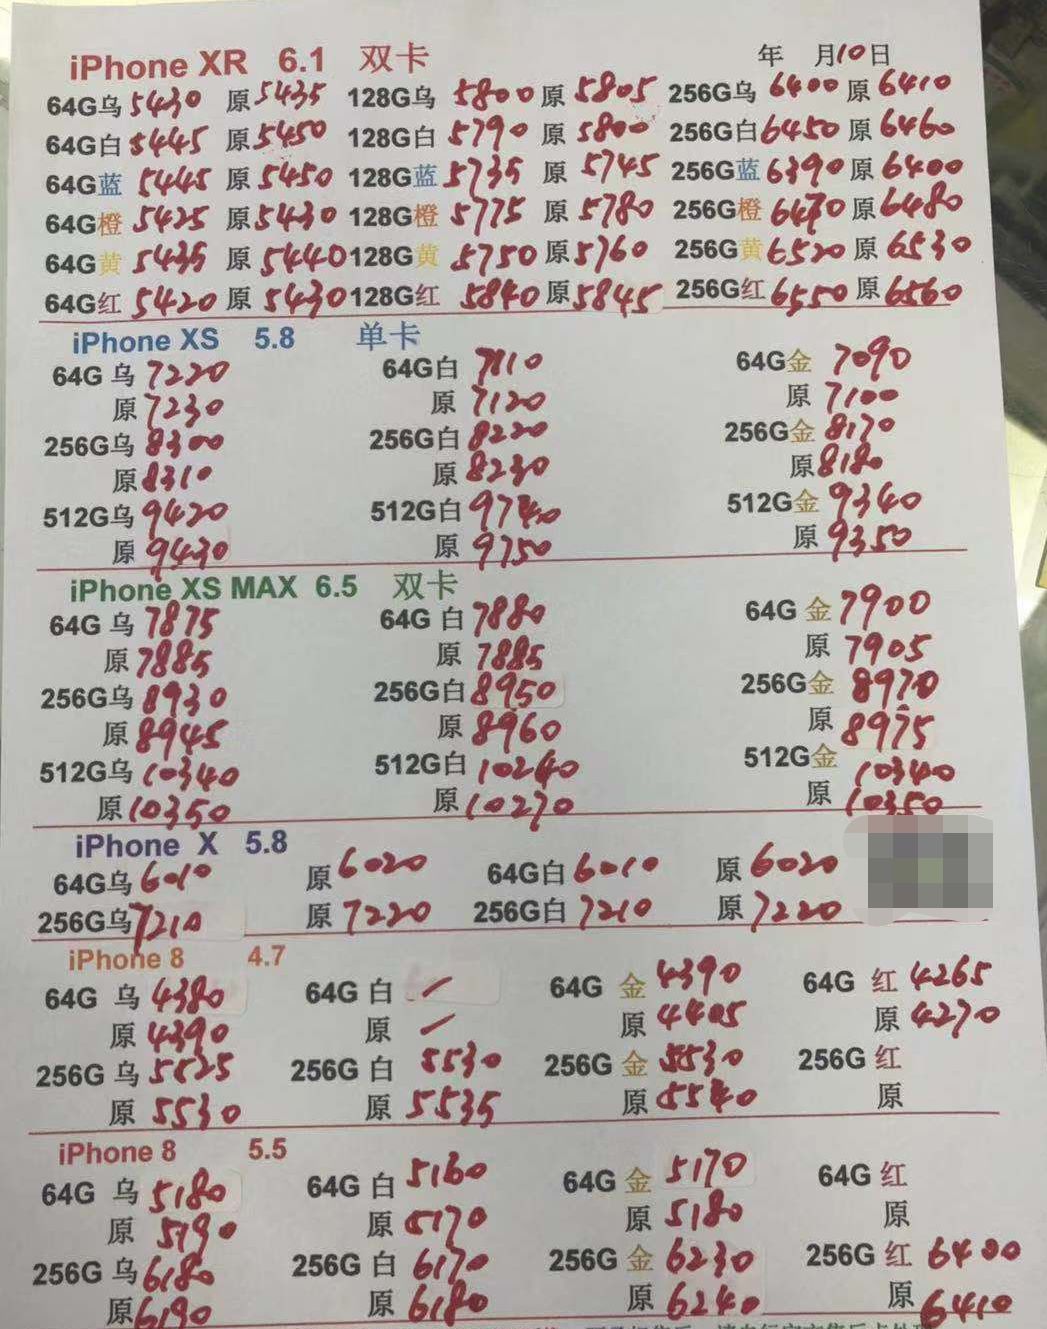 iPhone XR 6.1 双卡 年 月10日
64G乌 5430 原 5435 128G乌 5800 原 5805 256G乌 6400 原 6410
64G白 5445 原 5450 128G白 5790 原 5800 256G白 6450 原 6460
64G蓝 5445 原 5450 128G蓝 5735 原 5745 256G蓝 6390 原 6400
64G橙 5425 原 5430 128G橙 5775 原 5780 256G橙 6470 原 6480
64G黄 5435 原 5440 128G黄 5750 原 5760 256G黄 6520 原 6530
64G红 5420 原 5430 128G红 5840 原 5845 256G红 6550 原 6560
iPhone XS 5.8 单卡
64G 乌 7220 64G白 7110 64G金 7090
原 7230 原 7120 原 7100
256G乌 8300 256G白 8220 256G金 8170
原 8310 原 8230 原 8180
512G乌 9420 512G白 9740 512G金 9340
原 9430 原 9750 原 9350
iPhone XS MAX 6.5 双卡
64G 乌 7875 64G 白 7880 64G 金 7900
原 7885 原 7885 原 7905
256G乌 8930 256G白 8950 256G金 8970
原 8945 原 8960 原 8975
512G乌 10340 512G白 10240 512G金 10340
原 10350 原 10270 原 10350
iPhone X 5.8
64G乌 6010 原 6020 64G白 6010 原 6020
256G乌 7210 原 7220 256G白 7210 原 7220
iPhone 8 4.7
64G 乌 4380 64G 白 / 64G 金 4390 64G 红 4265
原 4390 原 / 原 4405 原 4270
256G 乌 5525 256G 白 5530 256G 金 5530 256G 红
原 5530 原 5535 原 5540 原
iPhone 8 5.5
64G 乌 5180 64G 白 5160 64G 金 5170 64G 红
原 5190 原 5170 原 5180 原
256G 乌 6180 256G 白 6170 256G 金 6230 256G 红 6400
原 6190 原 6180 原 6240 原 6410